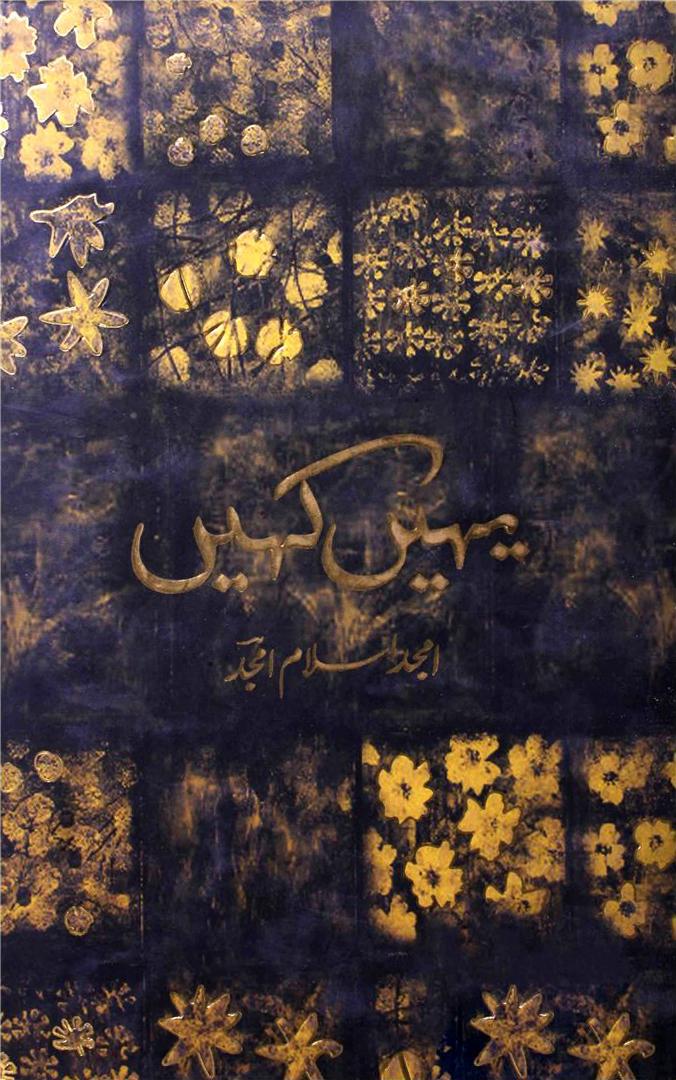 یہیں کہیں
امجد اسلام امجد